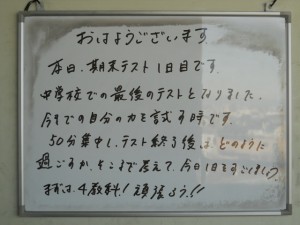 おはようございます
本日、期末テスト1日目です。
中学校での最後のテストとなりました。
今までの自分の力を試す時です。
50分集中し、テスト終了後はどのように
過ごすか、そこまで考えて、今日1日をすごしましょう。
まずは、4教科!頑張ろう!!